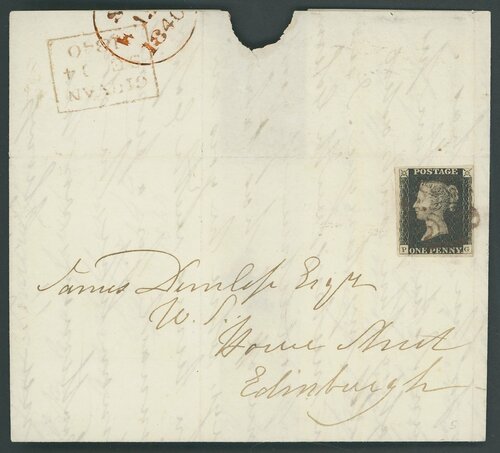 1840
GIRVAN
SE 14
1840
POSTAGE
P ONE PENNY G
James Dunlop Esqr
W. S.
Howe Street
Edinburgh